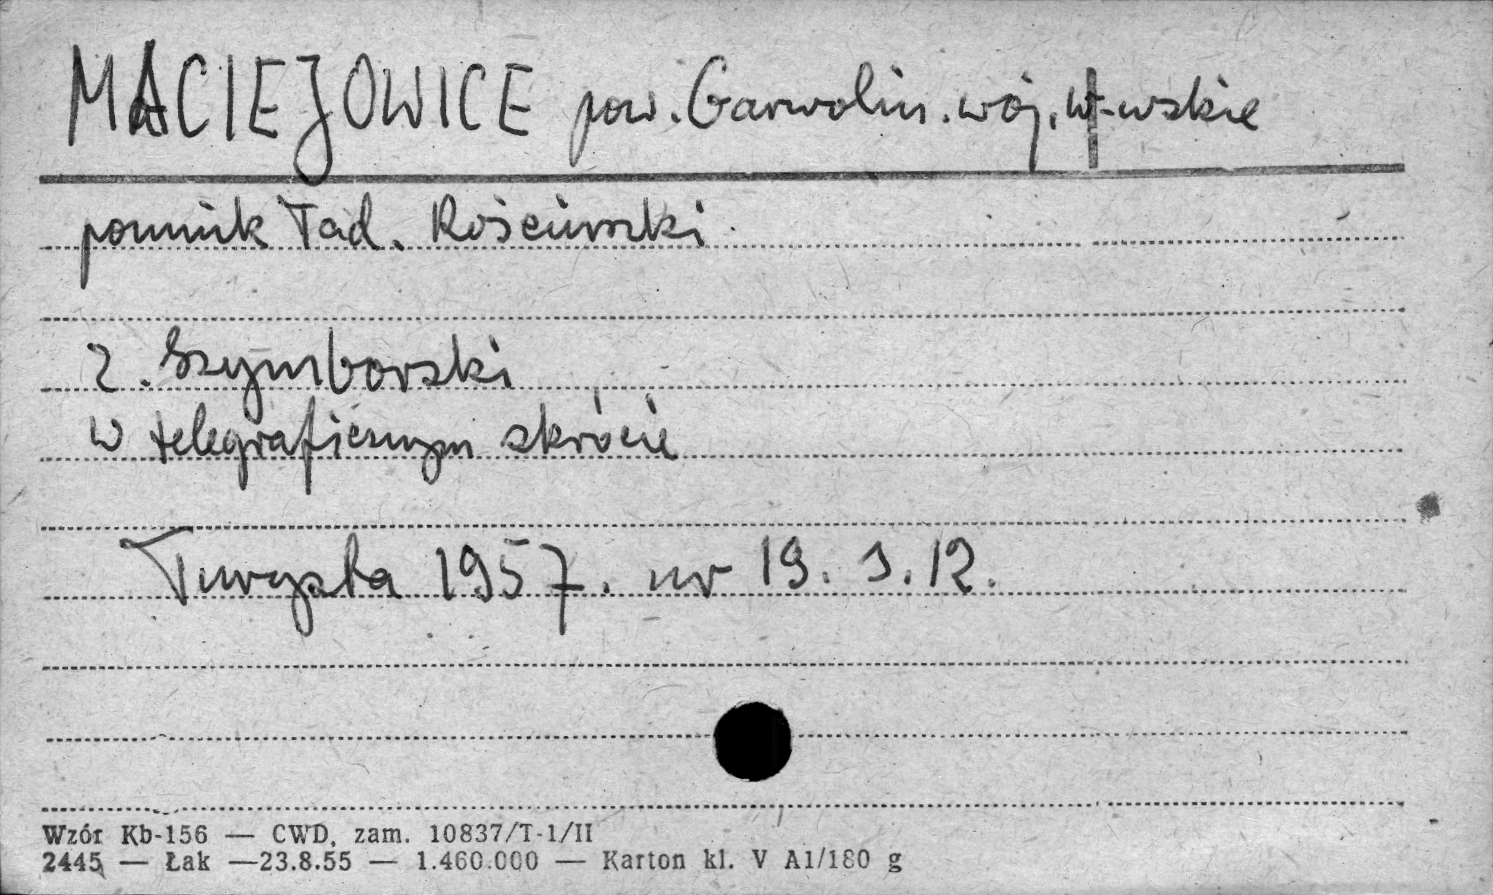 MACIEJOWICE pow. Garwolin. woj. W-wskie
pomnik Tad. Kościuszki
Z. Szymborski
W telegraficznym skrócie
Turysta 1957. nr 19. s. 12.
Wzór Kb-156 — CWD, zam. 10837/T-1/II
2445 — Łak —23.8.55 — 1.460.000 — Karton kl. V A1/180 g